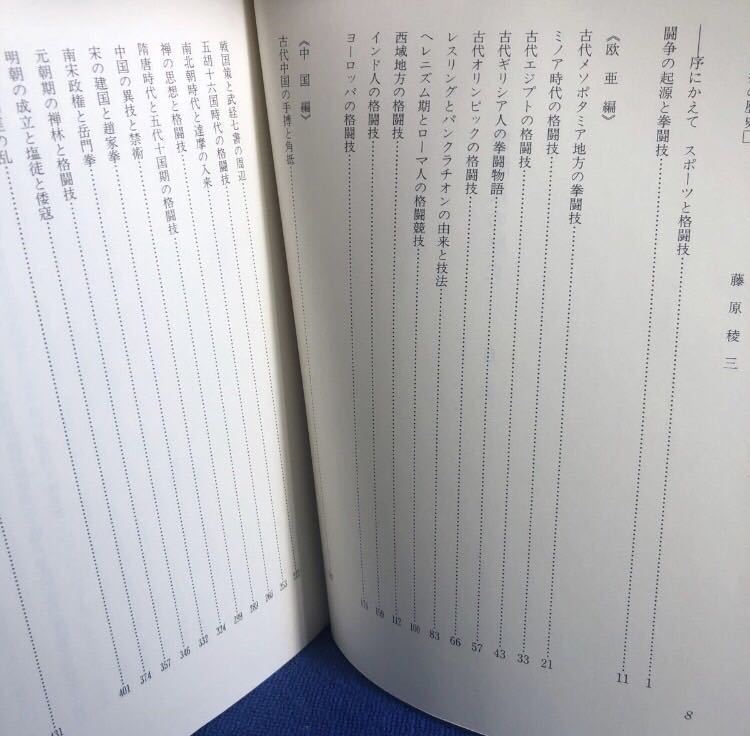 の歴史」
藤原稜三
――序にかえて スポーツと格闘技 1
闘争の起源と拳闘技 11
《欧亜編》
古代メソポタミア地方の拳闘技 21
ミノア時代の格闘技 33
古代エジプトの格闘技 43
古代ギリシア人の拳闘物語 57
古代オリンピックの格闘技 66
レスリングとパンクラチオンの由来と技法 83
ヘレニズム期とローマ人の格闘競技 100
西域地方の格闘技 112
インド人の格闘技 159
ヨーロッパの格闘技 174
8
《中国編》
古代中国の手搏と角抵
戦国策と武経七書の周辺 253
五胡十六国時代の格闘技 260
南北朝時代と達摩の人来 280
禅の思想と格闘技 299
隋唐時代と五代十国期の格闘技 324
中国の異技と禁術 332
宋の建国と趙家拳 346
南宋政権と岳門拳 357
元朝期の禅林と格闘技 374
明朝の成立と塩徒と倭寇 401
の乱 431